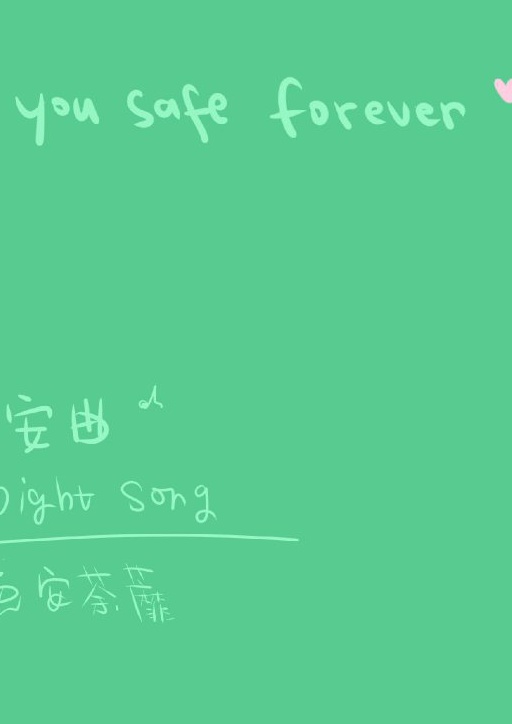 you safe forever
安曲
night song
安荼蘼